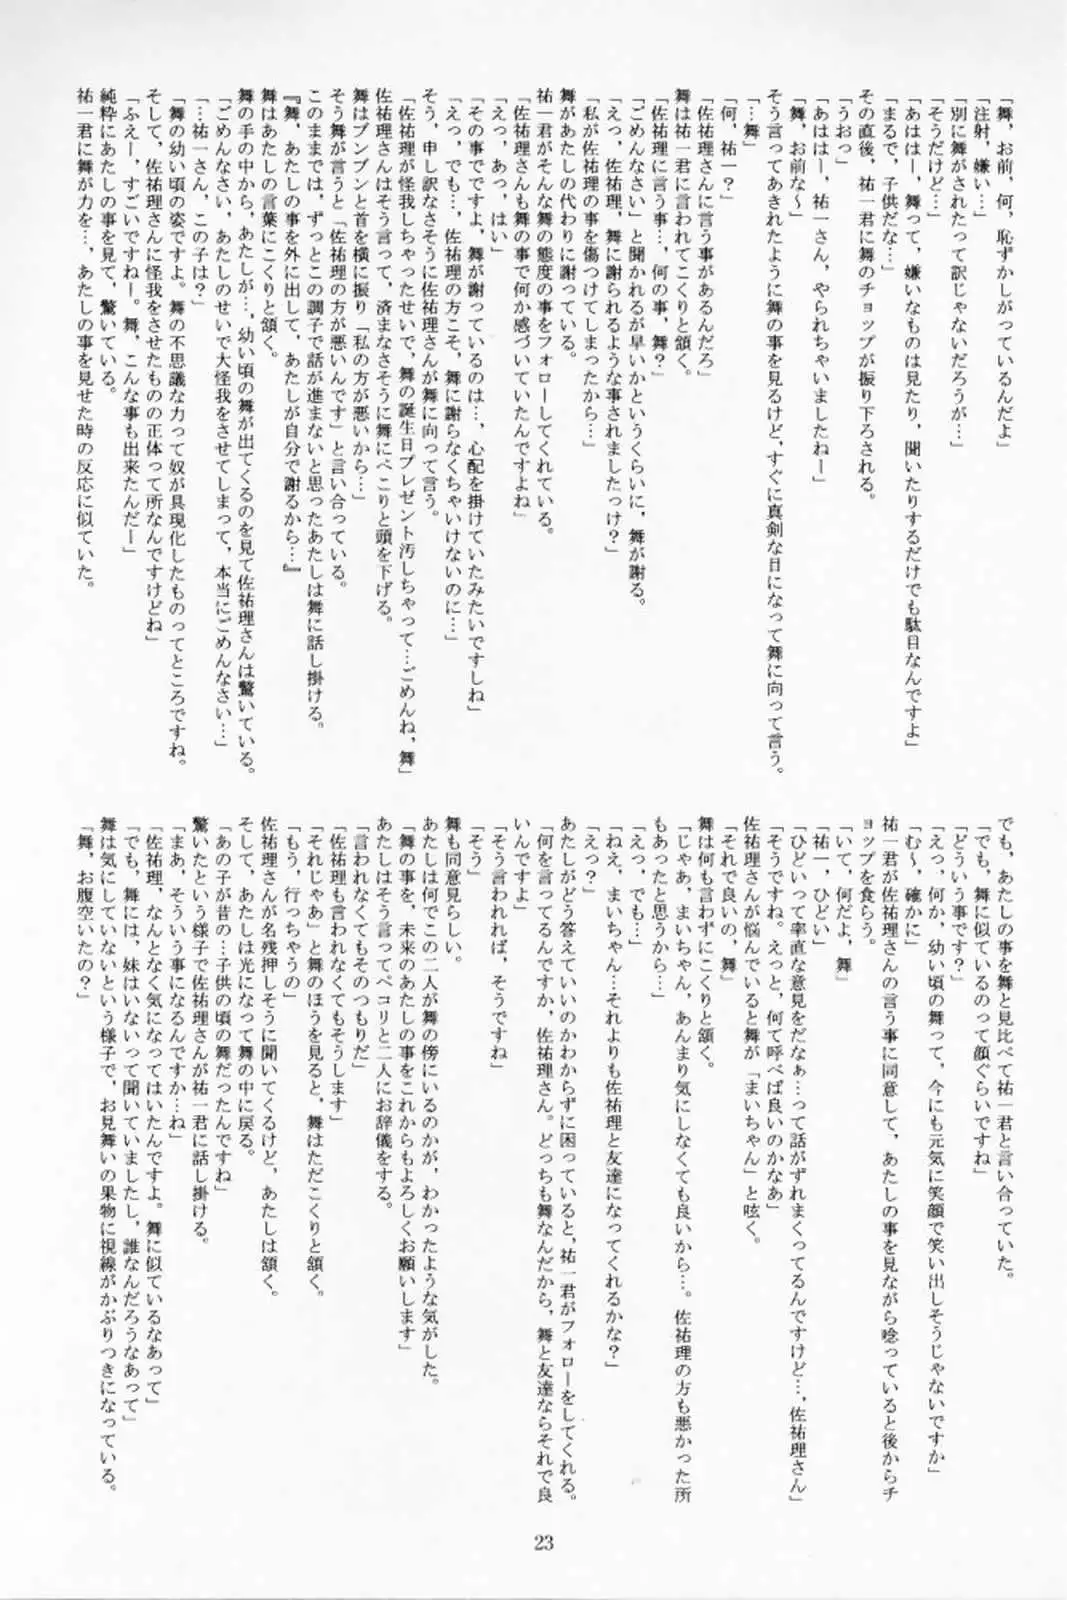 「舞、お前、何、恥ずかしがっているんだよ」
「注射、嫌い…」
「別に舞がされたって訳じゃないだろうが…」
「そうだけど…」
「あははー、舞って、嫌いなものは見たり、聞いたりするだけでも駄目なんですよ」
「まるで、子供だな…」
その直後、祐一君に舞のチョップが振り下ろされる。
「うおっ」
「あははー、祐一さん、やられちゃいましたねー」
「舞、お前な～」
そう言ってあきれたように舞の事を見るけど、すぐに真剣な目になって舞に向って言う。
「…舞」
「何、祐一？」
「佐祐理さんに言う事があるんだろ」
舞は祐一君に言われてこくりと頷く。
「佐祐理に言う事…、何の事、舞？」
「ごめんなさい」と聞かれるが早いかというくらいに、舞が謝る。
「えっ、佐祐理、舞に謝られるような事されましたっけ？」
「私が佐祐理の事を傷つけてしまったから…」
舞があたしの代わりに謝っている。
祐一君がそんな舞の態度の事をフォローしてくれている。
「佐祐理さんも舞の事で何か感づいていたんですよね」
「えっ、あっ、はい」
「その事でですよ、舞が謝っているのは…、心配を掛けていたみたいですしね」
「えっ、でも…、佐祐理の方こそ、舞に謝らなくちゃいけないのに…」
そう、申し訳なさそうに佐祐理さんが舞に向って言う。
「佐祐理が怪我しちゃったせいで、舞の誕生日プレゼント汚しちゃって…ごめんね、舞」
佐祐理さんはそう言って、済まなさそうに舞にペこりと頭を下げる。
舞はブンブンと首を横に振り「私の方が悪いから…」
そう舞が言うと「佐祐理の方が悪いんです」と言い合っている。
このままでは、ずっとこの調子で話が進まないと思ったあたしは舞に話し掛ける。
『舞、あたしの事を外に出して、あたしが自分で謝るから…』
舞はあたしの言葉にこくりと頷く。
舞の手の中から、あたしが…、幼い頃の舞が出てくるのを見て佐祐理さんは驚いている。
「ごめんなさい、あたしのせいで大怪我をさせてしまって、本当にごめんなさい…」
「…祐一さん、この子は？」
「舞の幼い頃の姿ですよ。舞の不思議な力って奴が具現化したものってところですね。
そして、佐祐理さんに怪我をさせたものの正体って所なんですけどね」
「ふえー、すごいですねー。舞、こんな事も出来たんだー」
純粋にあたしの事を見て、驚いている。
祐一君に舞が力を…、あたしの事を見せた時の反応に似ていた。
でも、あたしの事を舞と見比べて祐一君と言い合っていた。
「でも、舞に似ているのって顔ぐらいですね」
「どういう事です？」
「えっ、何か、幼い頃の舞って、今にも元気に笑顔で笑い出しそうじゃないですか」
「む～、確かに」
祐一君が佐祐理さんの言う事に同意して、あたしの事を見ながら唸っていると後からチ
ョップを食らう。
「いて、何だよ、舞」
「祐一、ひどい」
「ひどいって率直な意見をだなぁ…って話がずれまくってるんですけど…、佐祐理さん」
「そうですね。えっと、何て呼べば良いのかなあ」
佐祐理さんが悩んでいると舞が「まいちゃん」と呟く。
「それで良いの、舞」
舞は何も言わずにこくりと頷く。
「じゃあ、まいちゃん、あんまり気にしなくても良いから…。佐祐理の方も悪かった所
もあったと思うから…」
「えっ、でも…」
「ねえ、まいちゃん…それよりも佐祐理と友達になってくれるかな？」
「えっ？」
あたしがどう答えていいのかわからずに困っていると、祐一君がフォローをしてくれる。
「何を言ってるんですか、佐祐理さん。どっちも舞なんだから、舞と友達ならそれで良
いんですよ」
「そう言われれば、そうですね」
「そう」
舞も同意見らしい。
あたしは何でこの二人が舞の傍にいるのかが、わかったような気がした。
「舞の事を、未来のあたしの事をこれからもよろしくお願いします」
あたしはそう言ってペコリと二人にお辞儀をする。
「言われなくてもそのつもりだ」
「佐祐理も言われなくてもそうします」
「それじゃあ」と舞のほうを見ると、舞はただこくりと頷く。
「もう、行っちゃうの」
佐祐理さんが名残押しそうに聞いてくるけど、あたしは頷く。
そして、あたしは光になって舞の中に戻る。
「あの子が昔の…子供の頃の舞だったんですね」
驚いたという様子で佐祐理さんが祐一君に話し掛ける。
「まあ、そういう事になるんですか…ね」
「佐祐理、なんとなく気になってはいたんですよ。舞に似ているなあって」
「でも、舞には、妹はいないって聞いていましたし、誰なんだろうなあって」
舞は気にしていないという様子で、お見舞いの果物に視線がかぶりつきになっている。
「舞、お腹空いたの？」
23